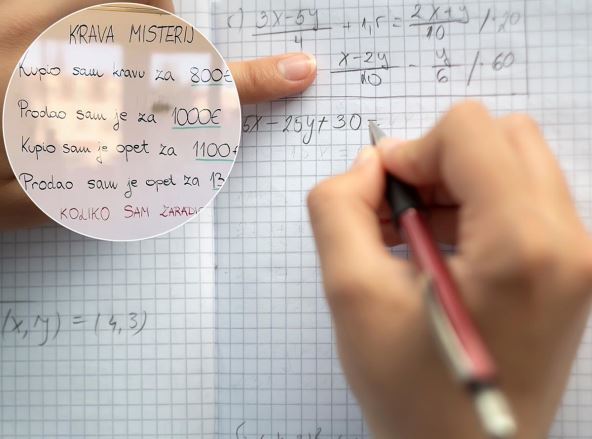 KRAVA MISTERIJ
Kupio sam kravu za 800€
Prodao sam je za 1000€
Kupio sam je opet za 1100
Prodao sam je opet za 13
KOLIKO SAM ZARADI
c) (3x-5y)/4 + 1,5 = (2x+y)/10 /·20
(x-2y)/10 - y/6 /·60
5x-25y+30=
(x,y) = (4,3)